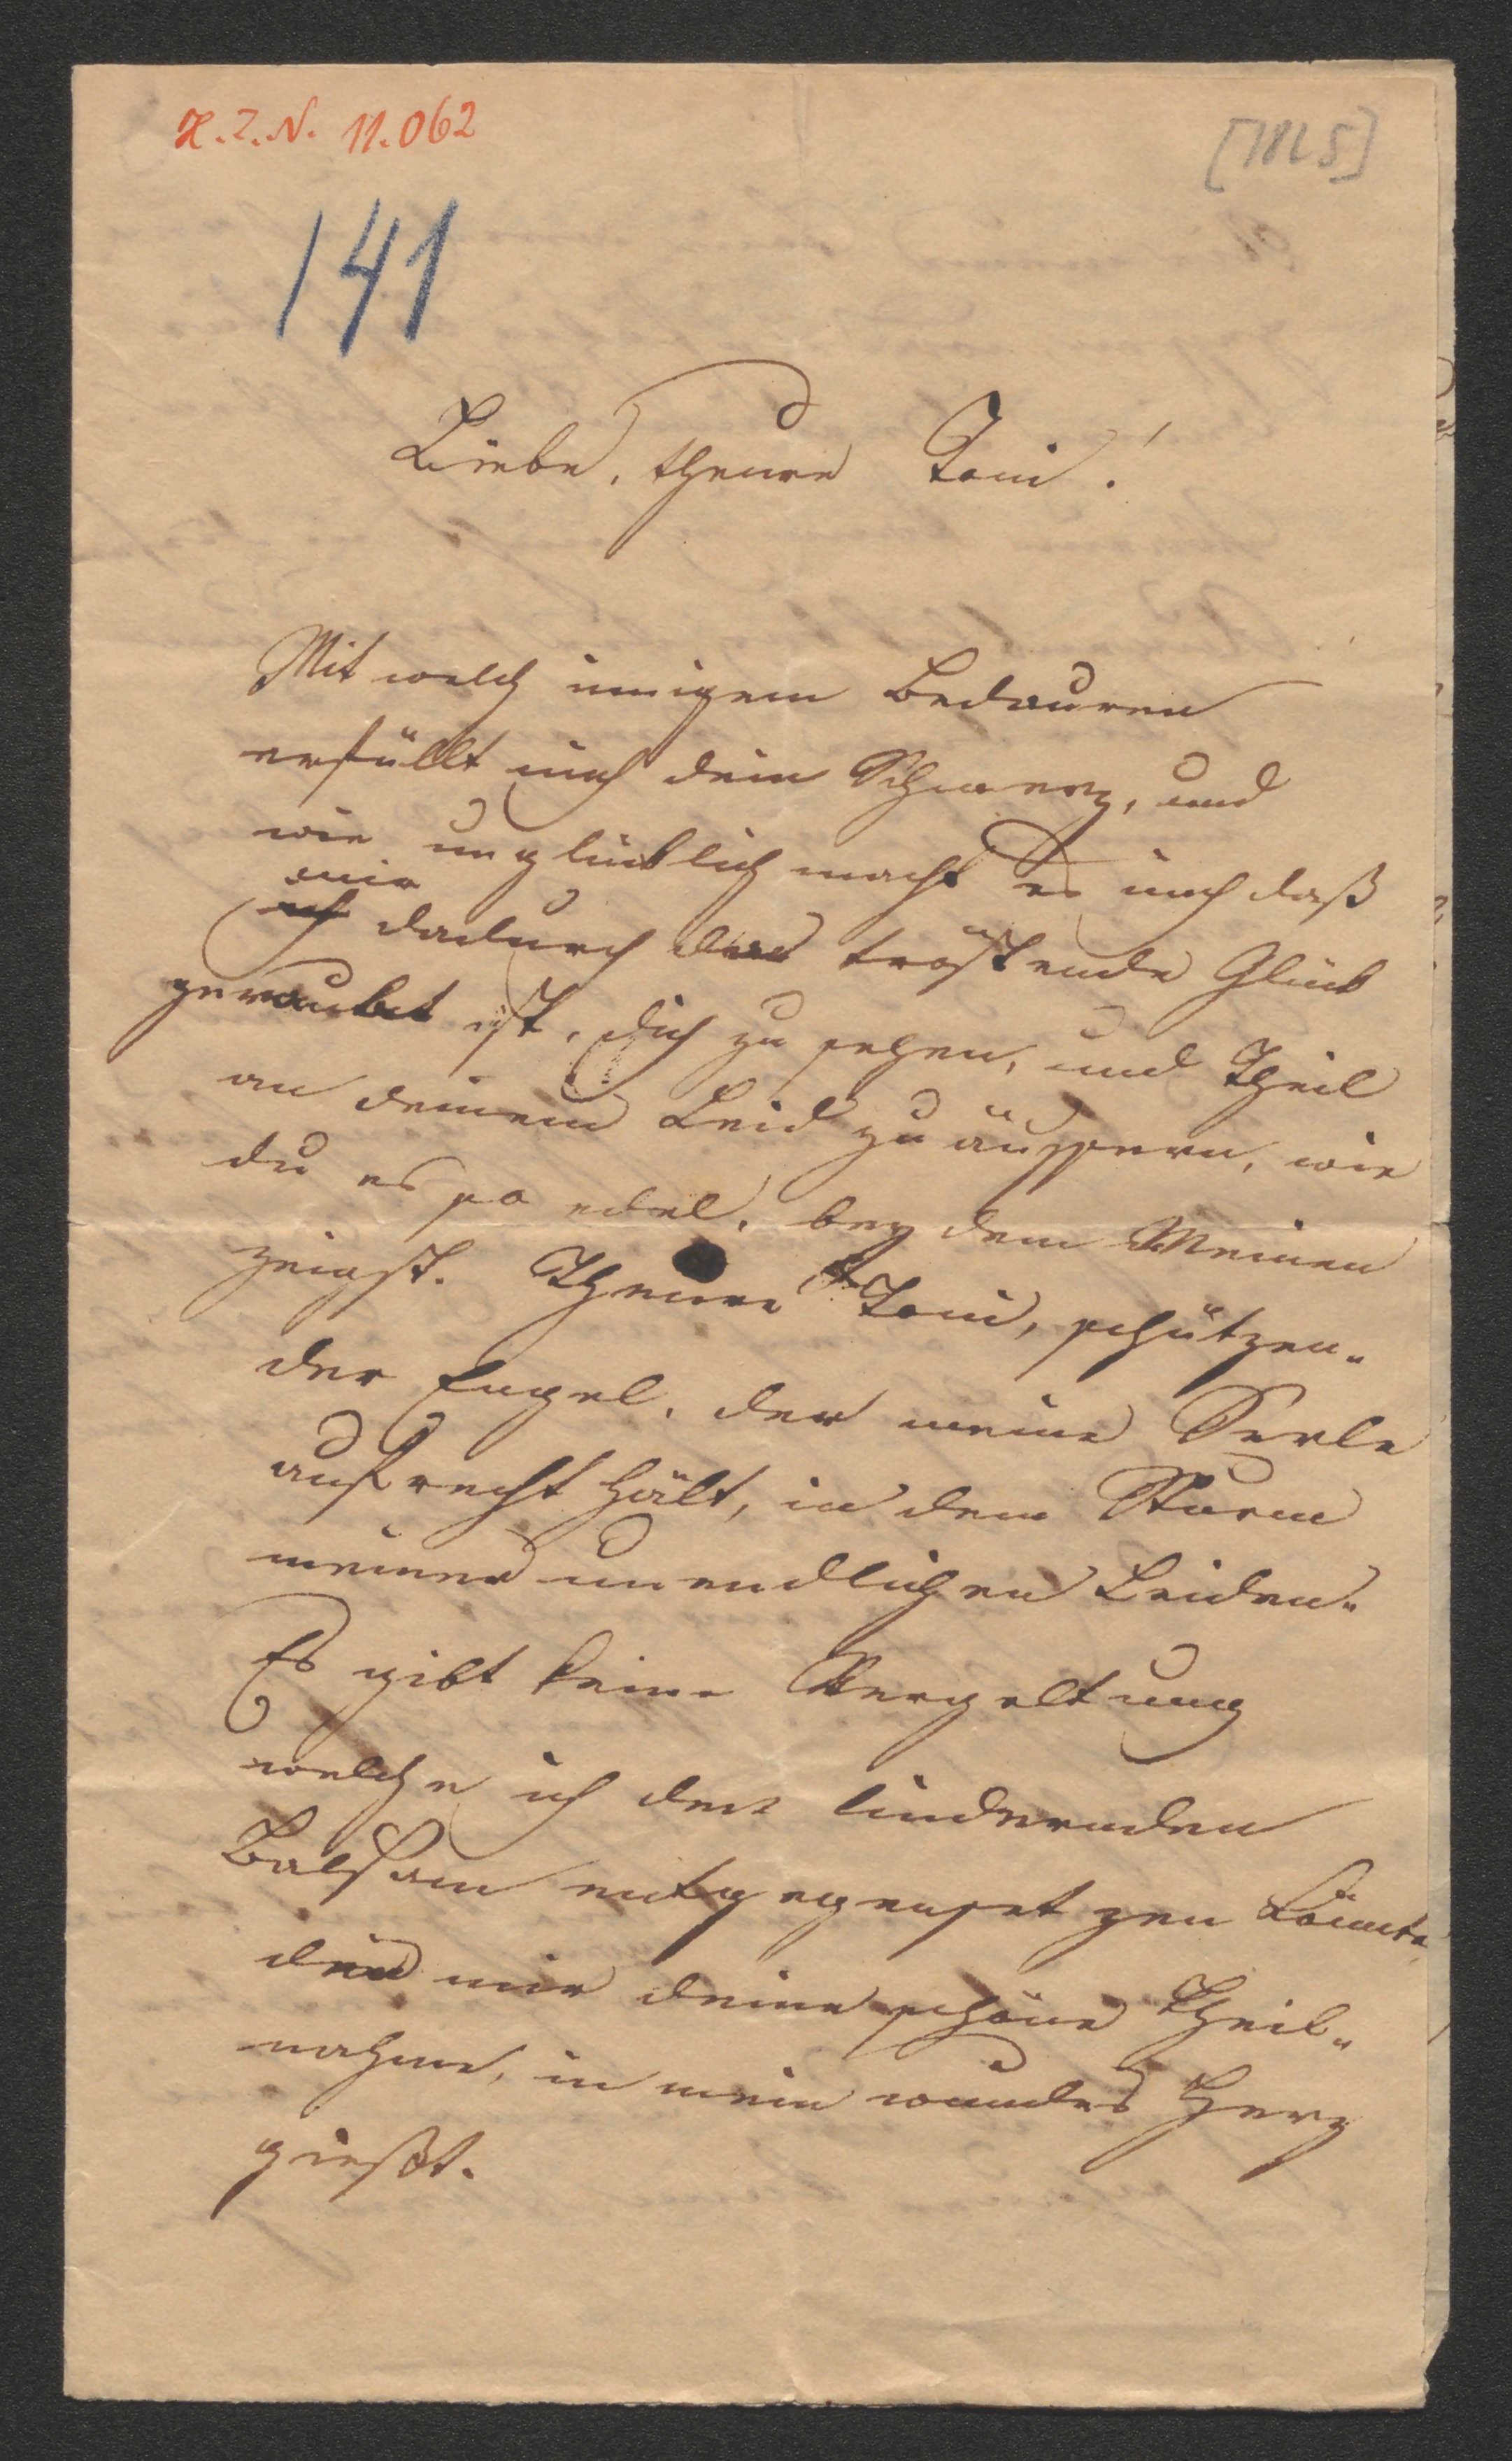 H.I.N. 11.062
[1825]
141
Liebe, theure Toni!
Mit welch innigem Bedauren
erfüllt mich dein Schmerz, und
wie unglücklich macht es mich daß
mir
ich dadurch das tröstende Glück
geraubt ist, dich zu sehen, und Theil
an deinem Leid zu äussern, wie
du es so edel, bey dem Meinen
zeigst. Theure Toni, schützen-
der Engel, der meine Seele
aufrecht hält, in dem Sturm
meiner unendlichen Leiden.
Es gibt keine Vergeltung
welche ich den lindernden
Balsam entgegensetzen könnte,
den mir deine schöne Theil-
nahme, in mein wundes Herz
gießt.